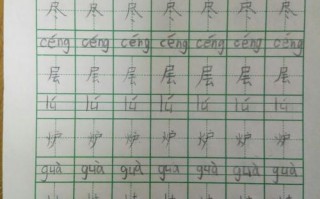 尽 尽 尽 尽 尽 尽 尽
céng céng céng céng céng céng céng
层 层 层 层 层 层 层
lú lú lú lú lú lú lú
炉 炉 炉 炉 炉 炉 炉
guà guà guà guà guà guà guà